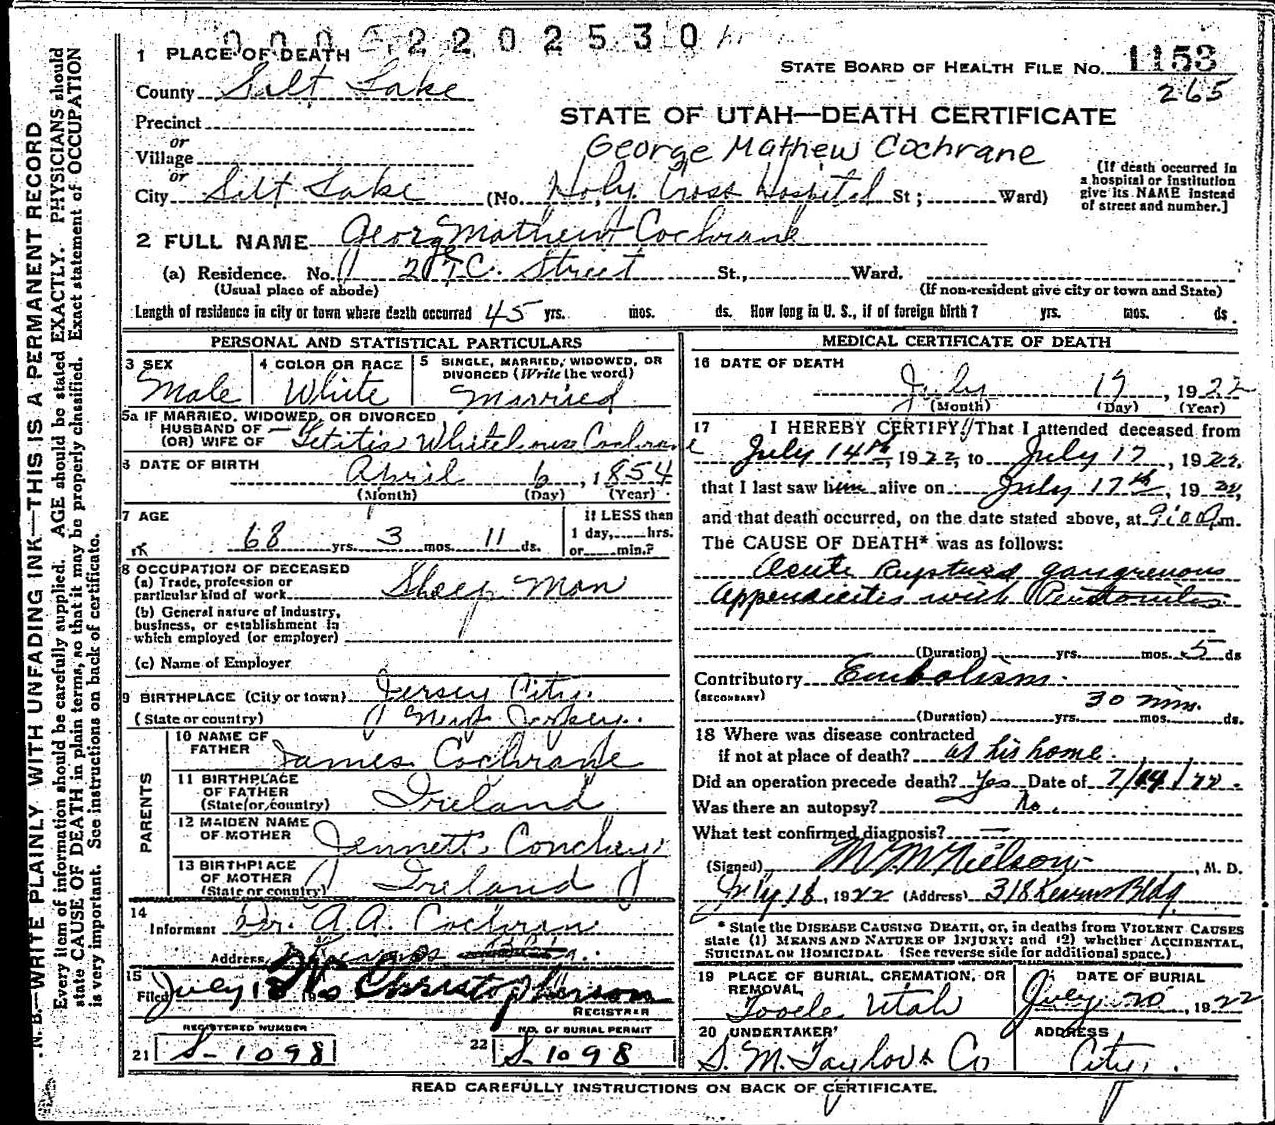 0005220 2530
1 PLACE OF DEATH
STATE BOARD OF HEALTH FILE No. 1153
County Salt Lake
265
STATE OF UTAH—DEATH CERTIFICATE
Precinct
or
Village
George Mathew Cochrane
or
City Salt Lake (No. Holy Cross Hospital St; Ward)
(If death occurred in a hospital or institution give its NAME instead of street and number.]
2 FULL NAME George Mathew Cochrane
(a) Residence. No. 207 C. Street St., Ward.
(Usual place of abode) (If non-resident give city or town and State)
Length of residence in city or town where death occurred 45 yrs. mos. ds. How long in U. S., if of foreign birth? yrs. mos. ds.
PERSONAL AND STATISTICAL PARTICULARS
3 SEX Male
4 COLOR OR RACE White
5 SINGLE, MARRIED, WIDOWED, OR DIVORCED (Write the word) Married
5a IF MARRIED, WIDOWED, OR DIVORCED
HUSBAND OF
(OR) WIFE OF Letitia Whitehouse Cochrane
6 DATE OF BIRTH April 6, 1854
(Month) (Day) (Year)
7 AGE
68 yrs. 3 mos. 11 ds.
If LESS than
1 day, hrs.
or min.?
8 OCCUPATION OF DECEASED
(a) Trade, profession or
particular kind of work Sheep Man
(b) General nature of industry,
business, or establishment in
which employed (or employer)
(c) Name of Employer
9 BIRTHPLACE (City or town) Jersey City.
(State or country) New Jersey.
PARENTS
10 NAME OF FATHER James Cochrane
11 BIRTHPLACE OF FATHER (State or country) Ireland
12 MAIDEN NAME OF MOTHER Jennett
13 BIRTHPLACE OF MOTHER (State or country) Ireland
14
Informant Dr. A.A. Cochran
Address Kearns
15
Filed July 18 Christopherson
REGISTRAR
REGISTERED NUMBER
21 S-1098
NO. OF BURIAL PERMIT
22 S-1098
MEDICAL CERTIFICATE OF DEATH
16 DATE OF DEATH
July 17, 1922
(Month) (Day) (Year)
17 I HEREBY CERTIFY, That I attended deceased from
July 14th, 1922, to July 17, 1922.
that I last saw him alive on July 17th, 1922,
and that death occurred, on the date stated above, at 9:00 P.m.
The CAUSE OF DEATH* was as follows:
Acute Ruptured gangrenous
Appendicites with Peritonitis
(Duration) yrs. mos. 5 ds
Contributory Embolism.
(SECONDARY) 30 mins.
(Duration) yrs. mos. ds.
18 Where was disease contracted
if not at place of death? at his home.
Did an operation precede death? Yes Date of 7/14/22.
Was there an autopsy? No.
What test confirmed diagnosis? —
(Signed) M M Nielson, M. D.
July 18, 1922 (Address) 318 Kearns Bldg.
* State the DISEASE CAUSING DEATH, or, in deaths from VIOLENT CAUSES
state (1) MEANS AND NATURE OF INJURY; and (2) whether ACCIDENTAL,
SUICIDAL OR HOMICIDAL. (See reverse side for additional space.)
19 PLACE OF BURIAL, CREMATION, OR REMOVAL
Tooele Utah
DATE OF BURIAL
July 20, 1922
20 UNDERTAKER
S. M. Taylor & Co
ADDRESS
City.
READ CAREFULLY INSTRUCTIONS ON BACK OF CERTIFICATE.
N. B.—WRITE PLAINLY WITH UNFADING INK—THIS IS A PERMANENT RECORD
Every item of information should be carefully supplied. AGE should be stated EXACTLY. PHYSICIANS should
state CAUSE OF DEATH in plain terms, so that it may be properly classified. Exact statement of OCCUPATION
is very important. See instructions on back of certificate.